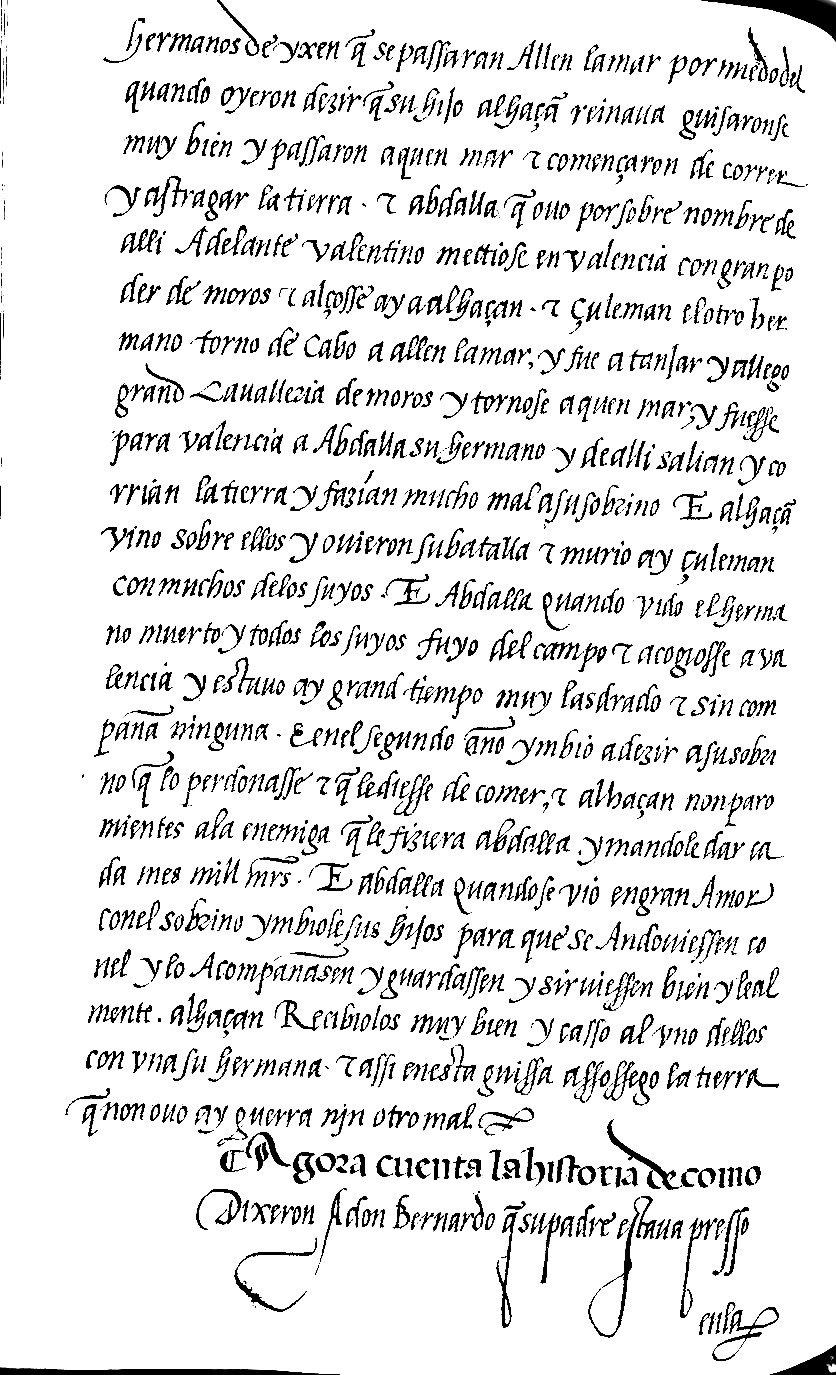 hermanos de yxen q̃ se passaran Allen la mar por miedo del
quando oyeron dezir q̃ su hijo alhaçã reinaua guisaronse
muy bien y passaron aquen mar τ començaron de correr
y astragar la tierra. τ abdalla q̃ ouo por sobre nombre de
alli Adelante valentino mettiose en valencia con gran po
der de moros τ alçosse ay a alhaçan. τ Çuleman el otro her
mano torno de Cabo a allen la mar, y fue a tanjar y allego
grand Cavalleria de moros y tornose aquen mar, y fuesse
para valencia a Abdalla su hermano y de alli salian y co
rrian la tierra y fazian mucho mal a su sobrino E alhaçã
vino sobre ellos y ouieron su batalla τ murio ay çuleman
con muchos de los suyos. E Abdalla quando vido el herma
no muerto y todos los suyos fuyo del campo τ acogiosse a va
lencia y estuuo ay grand tiempo muy lasdrado τ sin com
pãna ninguna. E en el segundo ãno ymbio a dezir a su sobri
no q̃ lo perdonasse τ q̃ le diesse de comer, τ alhaçan non paro
mientes a la enemiga q̃ le fiziera abdalla y mandole dar ca
da mes mill mrs. E abdalla quando se vio en gran Amor
con el sobrino ymbiole sus hijos para que se Andouiessen co
nel y lo Acompãnasen y guardassen y siruiessen bien y leal
mente. alhaçan Recibiolos muy bien y casso al vno dellos
con vna su hermana. τ assi en esta guissa assossego la tierra
q̃ non ouo ay guerra nin otro mal.
¶ Agora cuenta la historia de como
Dixeron A don Bernardo q̃ su padre estaua presso
en la